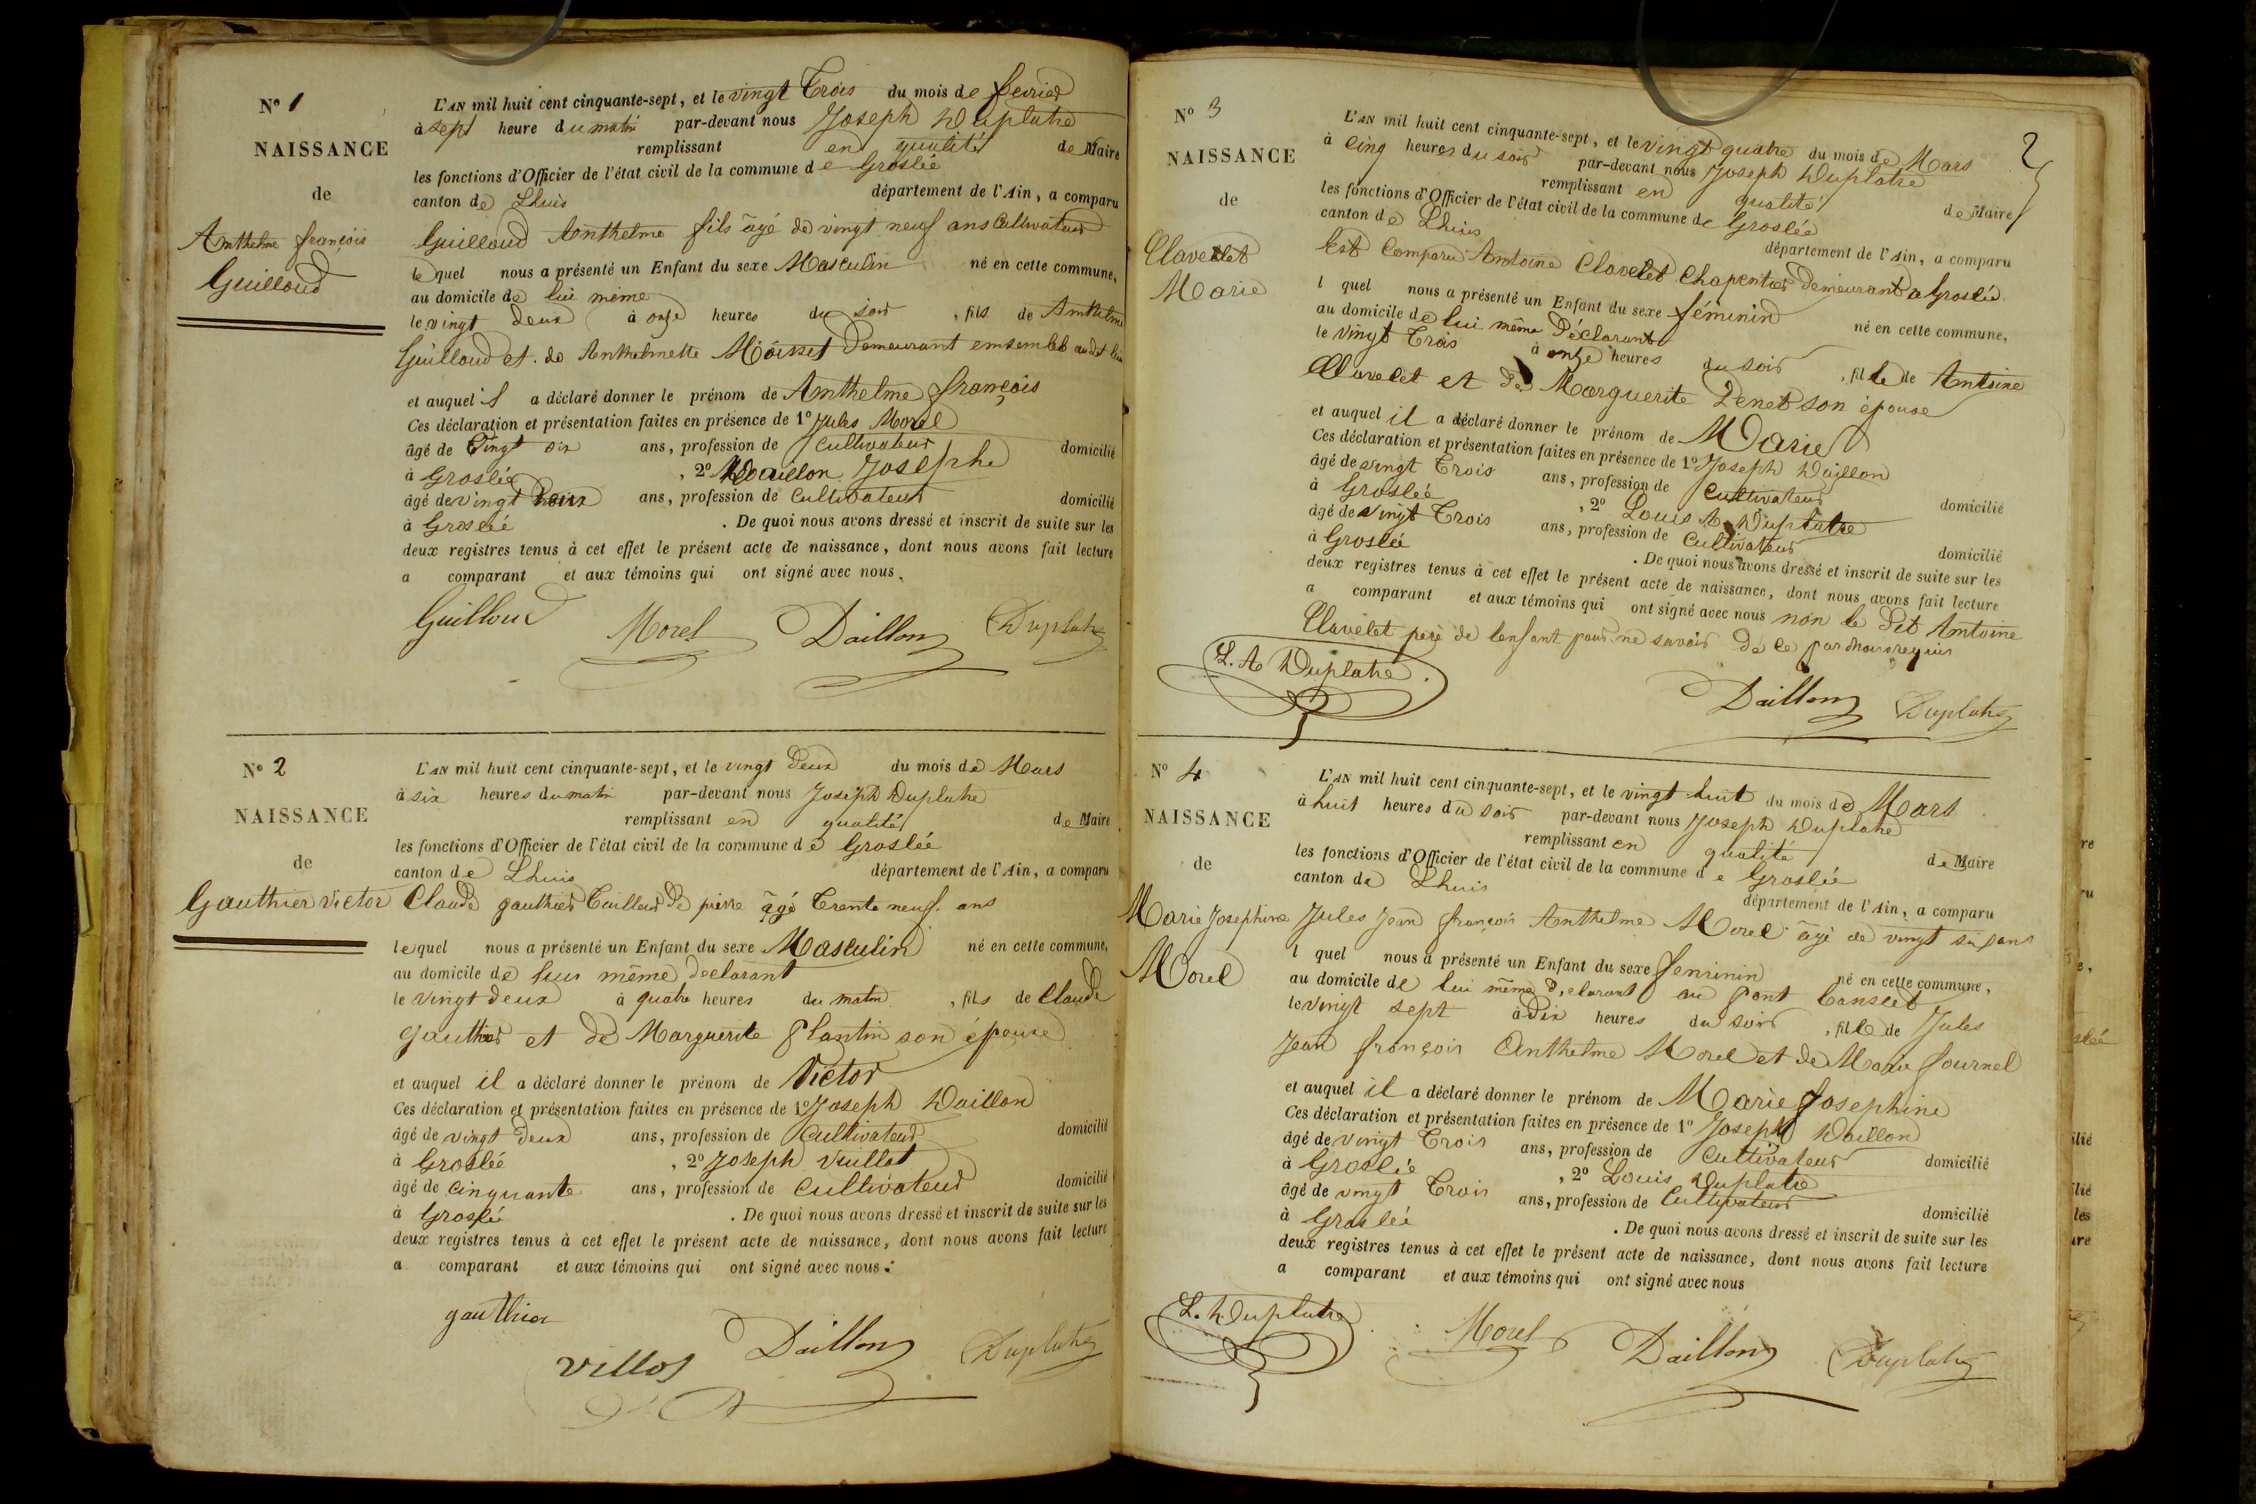 N° 1
NAISSANCE
de
Anthelme françois
Guilloud
L'AN mil huit cent cinquante-sept, et le vingt Trois du mois de fevrier
à sept heure du matin par-devant nous Joseph Duplatre
remplissant en qualité de Maire
les fonctions d'Officier de l'état civil de la commune de Groslée
canton de Lhuis département de l'Ain, a comparu
Guilloud Anthelme fils âgé de vingt neuf ans Cultivateur
lequel nous a présenté un Enfant du sexe Masculin né en cette commune,
au domicile de lui même
le vingt deux à onze heures du soir, fils de Anthelme
Guilloud et de Anthelmette Moisset Demeurant ensemble audit lieu
et auquel il a déclaré donner le prénom de Anthelme françois
Ces déclaration et présentation faites en présence de 1° Jules Morel
âgé de Vingt six ans, profession de Cultivateur domicilié
à Groslée, 2° Daillon Josephe
âgé de vingt deux ans, profession de Cultivateur domicilié
à Groslée. De quoi nous avons dressé et inscrit de suite sur les
deux registres tenus à cet effet le présent acte de naissance, dont nous avons fait lecture
a comparant et aux témoins qui ont signé avec nous.
Guilloud Morel Daillon Duplatre
N° 2
NAISSANCE
de
Gauthier Victor
L'AN mil huit cent cinquante-sept, et le vingt deux du mois de Mars
à six heures du matin par-devant nous Joseph Duplatre
remplissant en qualité de Maire
les fonctions d'Officier de l'état civil de la commune de Groslée
canton de Lhuis département de l'Ain, a comparu
Claude gauthier Tailleur De pierre âgé Trente neuf ans
lequel nous a présenté un Enfant du sexe Masculin né en cette commune,
au domicile de lui même declarant
le Vingt deux à quatre heures du matin, fils de Claude
gauthier et de Marguerite Plantin son épouse
et auquel il a déclaré donner le prénom de Victor
Ces déclaration et présentation faites en présence de 1° Joseph Daillon
âgé de vingt deux ans, profession de Cultivateur domicilié
à Groslée, 2° Joseph Vuillot
âgé de Cinquante ans, profession de Cultivateur domicilié
à Groslée. De quoi nous avons dressé et inscrit de suite sur les
deux registres tenus à cet effet le présent acte de naissance, dont nous avons fait lecture
a comparant et aux témoins qui ont signé avec nous.
gauthier
Villot Daillon Duplatre
2
N° 3
NAISSANCE
de
Clavelet
Marie
L'AN mil huit cent cinquante-sept, et le vingt quatre du mois de Mars
à cinq heures du soir par-devant nous Joseph Duplatre
remplissant en qualité de Maire
les fonctions d'Officier de l'état civil de la commune de Groslée
canton de Lhuis département de l'Ain, a comparu
Est Comparu Antoine Clavelet Chapentier Demeurant a Groslée
l quel nous a présenté un Enfant du sexe féminin né en cette commune,
au domicile de lui même Déclarant
le Vingt Trois à onze heures du soir, fille de Antoine
Clavelet et de Marguerite Penet son épouse
et auquel il a déclaré donner le prénom de Marie
Ces déclaration et présentation faites en présence de 1° Joseph Daillon
âgé de vingt Trois ans, profession de Cultivateur domicilié
à Groslée, 2° Louis A Duplatre
âgé de vingt Trois ans, profession de Cultivateur domicilié
à Groslée. De quoi nous avons dressé et inscrit de suite sur les
deux registres tenus à cet effet le présent acte de naissance, dont nous avons fait lecture
a comparant et aux témoins qui ont signé avec nous non le dit Antoine
Clavelet pere de lenfant pour ne savoir De ce par nous requis
L. A Duplatre Daillon Duplatre
N° 4
NAISSANCE
de
Marie Josephine
Morel
L'AN mil huit cent cinquante-sept, et le vingt huit du mois de Mars
à huit heures du soir par-devant nous Joseph Duplatre
remplissant en qualité de Maire
les fonctions d'Officier de l'état civil de la commune de Groslée
canton de Lhuis département de l'Ain, a comparu
Jules Jean françois Anthelme Morel âgé de vingt six ans
l quel nous a présenté un Enfant du sexe feminin né en cette commune,
au domicile de lui même Declarant au Pont
le vingt sept à Dix heures du soir, fille de Jules
Jean françois Anthelme Morel et de Marie fournel
et auquel il a déclaré donner le prénom de Marie Josephine
Ces déclaration et présentation faites en présence de 1° Joseph Daillon
âgé de vingt Trois ans, profession de Cultivateur domicilié
à Groslée, 2° Louis Duplatre
âgé de vingt Trois ans, profession de Cultivateur domicilié
à Groslée. De quoi nous avons dressé et inscrit de suite sur les
deux registres tenus à cet effet le présent acte de naissance, dont nous avons fait lecture
a comparant et aux témoins qui ont signé avec nous
L. Duplatre Morel Daillon Duplatre